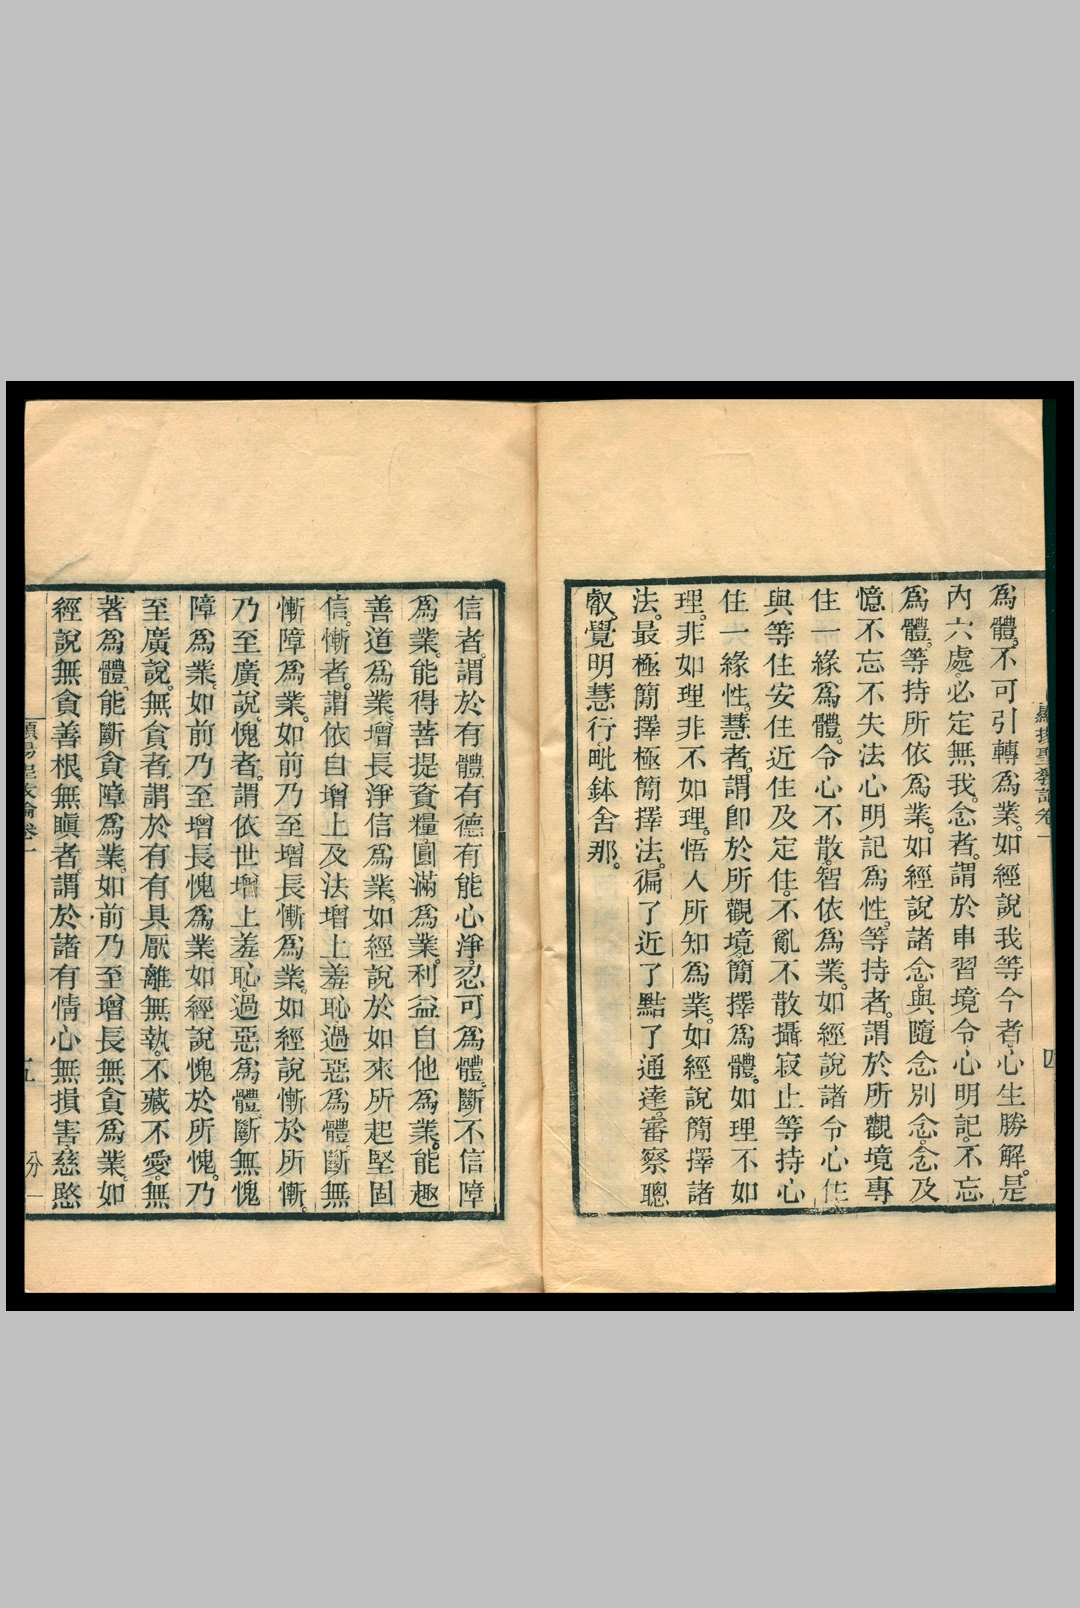 爲體。不可引轉爲業。如經說我等今者。心生勝解。是
內六處。必定無我。念者。謂於串習境令心明記。不忘
爲體。等持所依爲業。如經說諸念。與隨念別念念及
憶不忘不失法心明記爲性。等持者。謂於所觀境專
住一緣爲體。令心不散。智依爲業。如經說諸令心住
與等住安住近住及定住。不亂不散攝寂止等持心
住一緣性。慧者。謂卽於所觀境。簡擇爲體。如理不如
理。非如理非不如理。悟入所知爲業。如經說簡擇諸
法。最極簡擇極簡擇法。徧了近了黠了通達。審察聰
叡。覺明慧行。毗鉢舍那。
信者。謂於有體有德有能心淨。忍可爲體。斷不信障
爲業。能得菩提資糧圓滿爲業。利益自他爲業。能趣
善道爲業。增長淨信爲業。如經說於如來所起堅固
信。慚者。謂依自增上及法增上羞恥過惡爲體斷無
慚障爲業。如前乃至增長慚爲業。如經說慚於所慚。
乃至廣說。愧者。謂依世增上羞恥。過惡爲體。斷無愧
障爲業。如前乃至增長愧爲業如經說愧於所愧。乃
至廣說。無貪者。謂於有有具厭離無執。不藏不愛。無
著爲體。能斷貪障爲業。如前乃至增長無貪爲業。如
經說無貪善根。無瞋者。謂於諸有情心無損害。慈愍
顯揚聖教論卷一
四
五